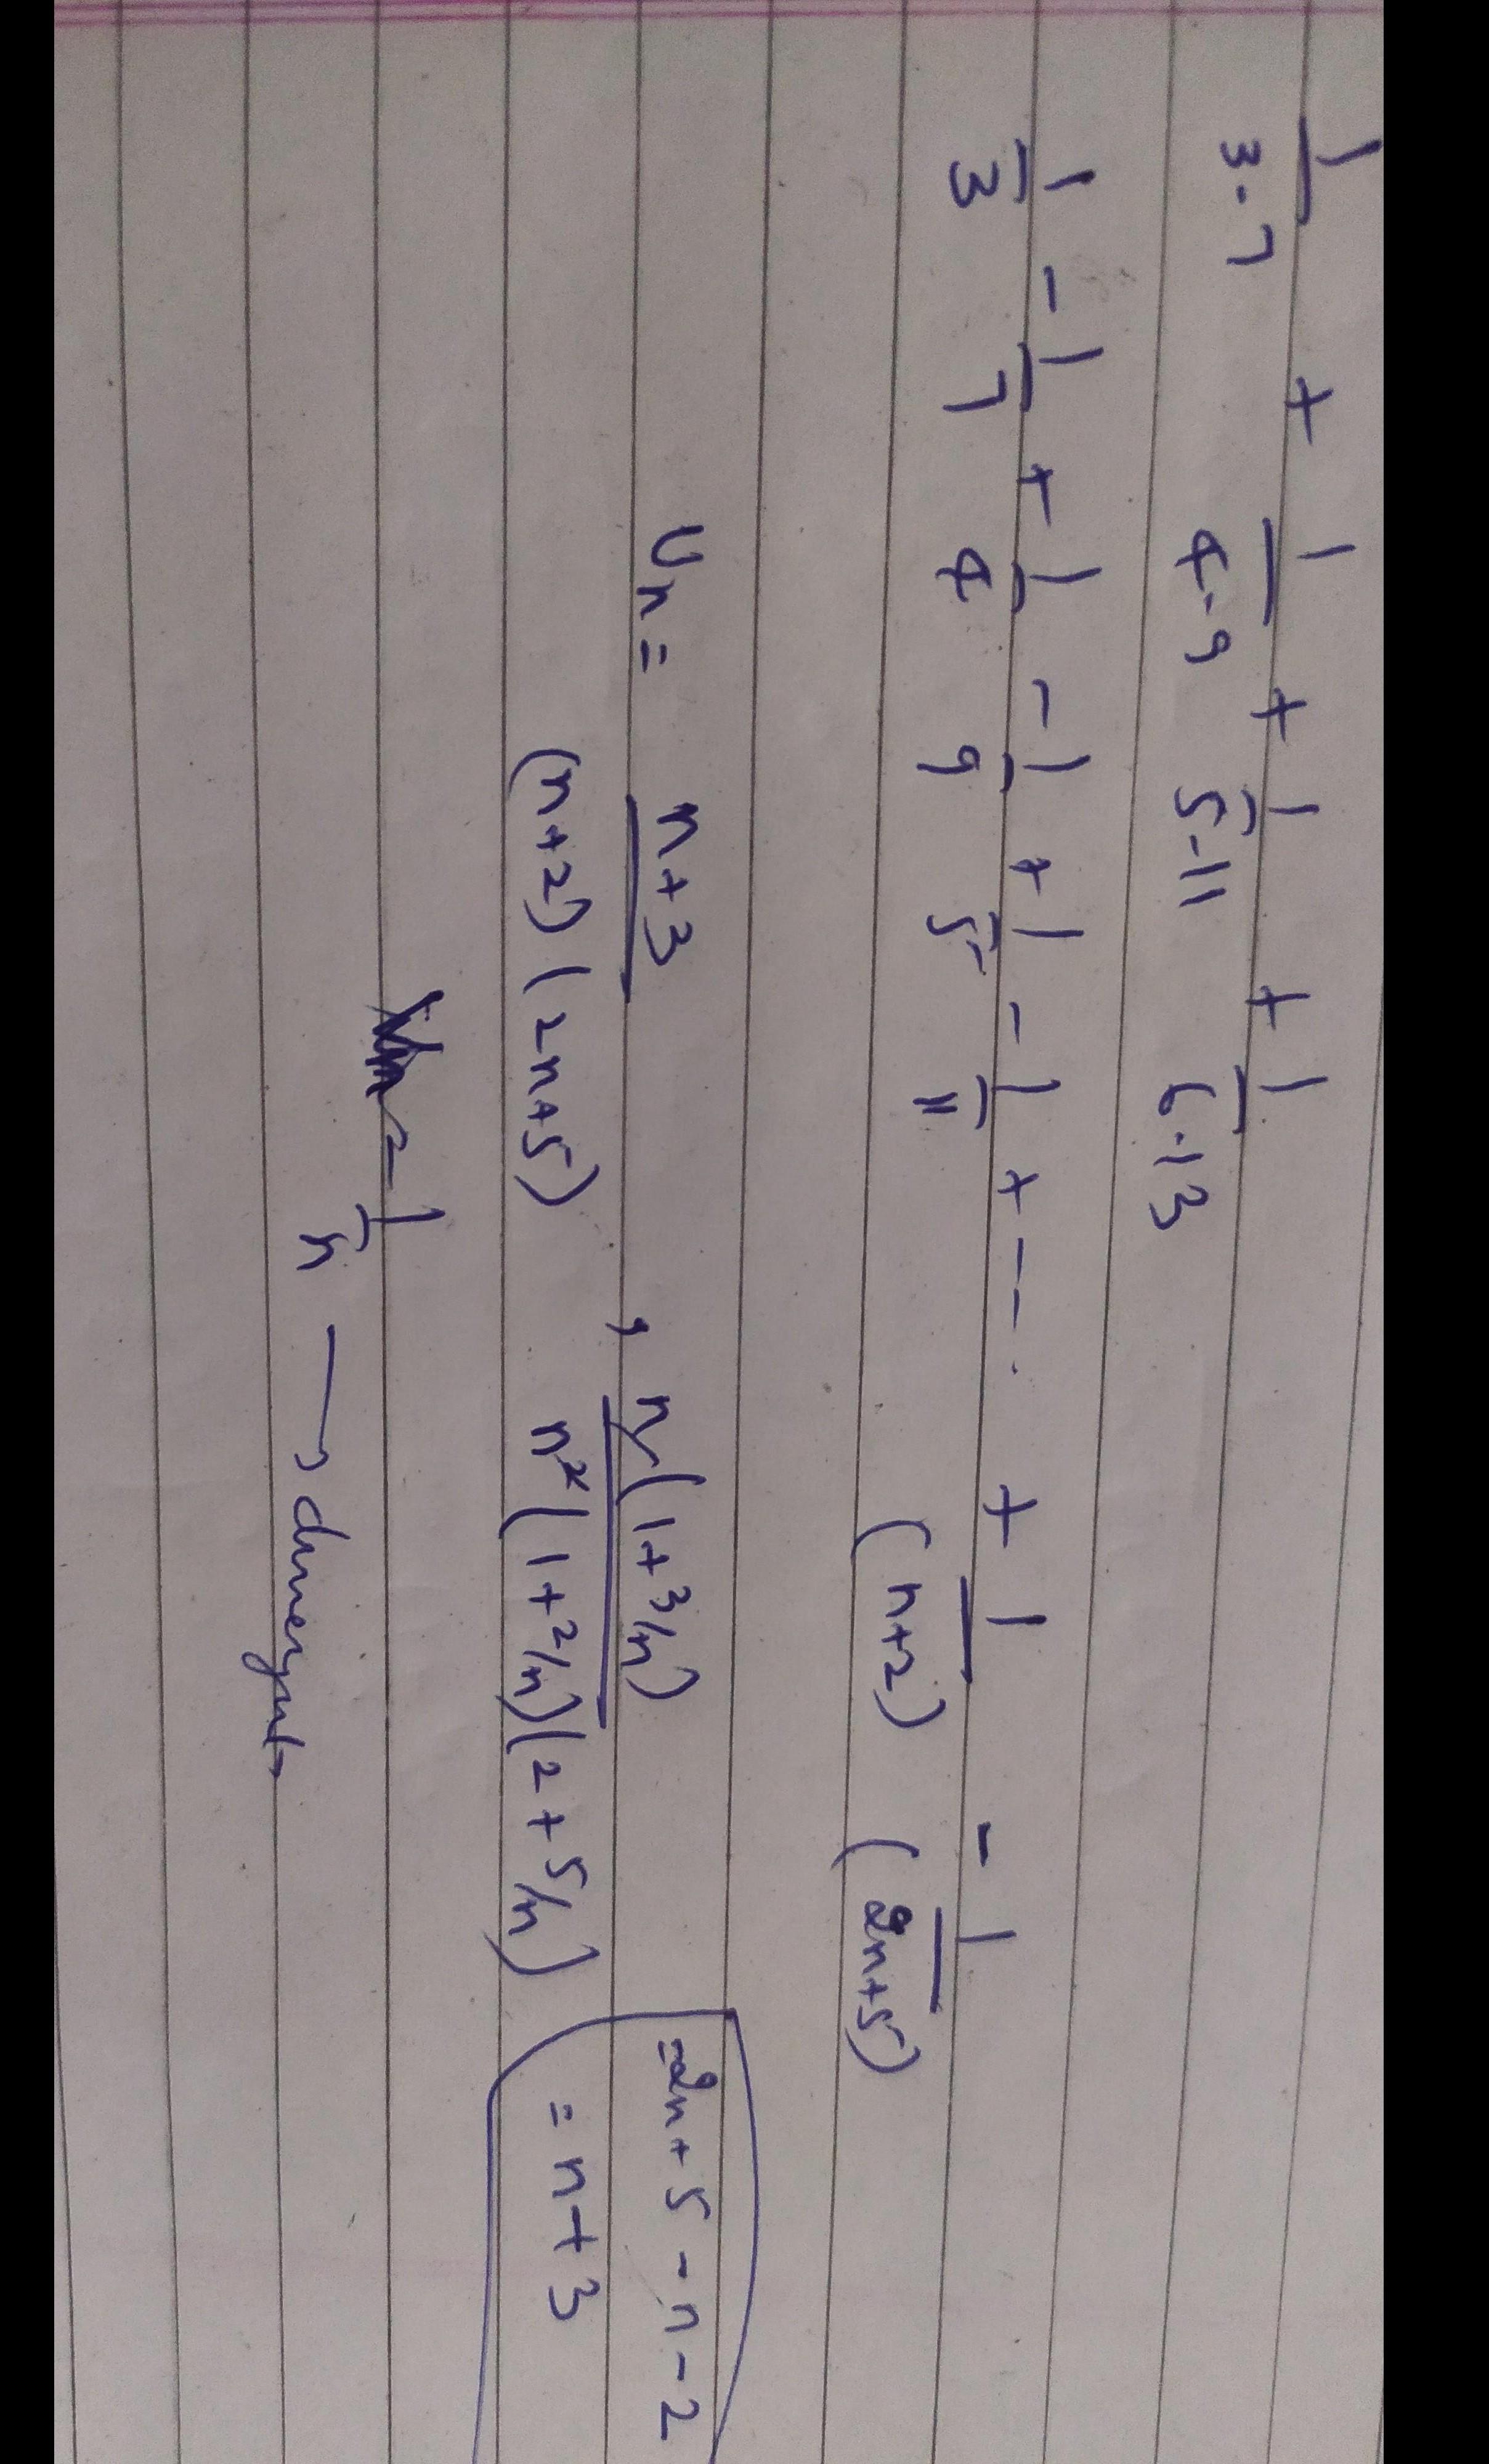 1/3·7 + 1/4·9 + 1/5·11 + 1/6·13
1/3 - 1/7 + 1/4 - 1/9 + 1/5 - 1/11 + ---. + 1/(n+2) - 1/(2n+5)
Un = n+3/(n+2)(2n+5) , n(1+3/n)/n²(1+2/n)(2+5/n)
=2n+5-n-2
= n+3
Vn = 1/n → divergent